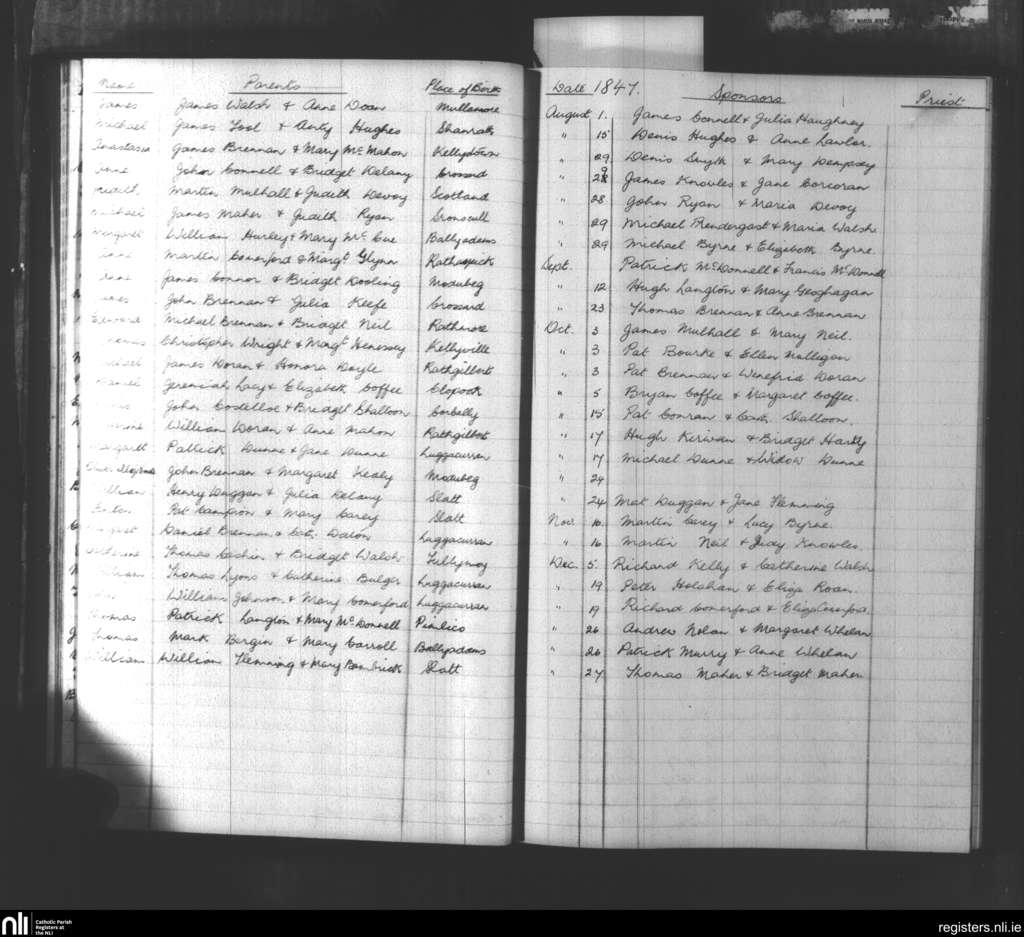 Name Parents Place of Birth Date 1847. Sponsors Priest
James James Walsh & Anne Doran Mullamore August 1. James Connell & Julia Haughney
Michael James Tool & Anty Hughes Shanrath " 15 Denis Hughes & Anne Lawlor.
Anastasia James Brennan & Mary McMahon Kellydown " 29 Denis Smyth & Mary Dempsey
Anne John Connell & Bridget Delany Crossard " 28 James Knowles & Jane Corcoran
Judith Martin Mulhall & Judith Devoy Scotland " 28 John Ryan & Maria Devoy
Michael James Maher & Judith Ryan " 29 Michael Prendergast & Maria Walsh
Margaret William Hurley & Mary McCue Ballyadams " 29 Michael Byrne & Elizabeth Byrne.
Martin Comerford & Margt Glynn Sept. Patrick McDonnell & Francis McDonnell
James Connor & Bridget Dooling Modubeg " 12 Hugh Langton & Mary Geoghagan
John Brennan & Julia Keefe Crossard " 23 Thomas Brennan & Anne Brennan
Edward Michael Brennan & Bridget Neil Rathmore Oct. 3 James Mulhall & Mary Neil.
Christopher Wright & Margt Henessey Kellyville " 3 Pat Bourke & Ellen Mulligan
James Doran & Honora Doyle Rathgilbert " 3 Pat Brennan & Winefrid Doran
Jeremiah Lacy & Elizabeth Coffee Clopook " 5 Bryan Coffee & Margaret Coffee.
John Costelloe & Bridget Shalloon Corbally " 15 Pat Conran & Cath. Shalloon.
William Doran & Anne Mahon Rathgilbet " 17 Hugh Kerivan & Bridget Hardy
Margaret Patrick Dunne & Jane Dunne Luggacurran " 17 Michael Dunne & Widow Dunne
John Brennan & Margaret Healy Modubeg " 24
William Henry Duggan & Julia Delany Slatt " 24 Mat Duggan & Jane Flemming
Pat Campion & Mary Carey Slatt Nov. 16. Martin Carey & Lucy Byrne.
Margaret Daniel Brennan & Cat. Daron Luggacurran " 16 Martin Neil & Judy Knowles.
Catherine Thomas Cashin & Bridget Walsh Dec. 5. Richard Kelly & Catherine Walsh
William Thomas Lyons & Catherine Bulger Luggacurran " 19 Peter Holahan & Eliza Roan.
William Johnson & Mary Comerford Luggacurran " 19 Richard Comerford & Eliza Comerford
Thomas Patrick Langton & Mary McDonnell Pimlico " 26 Andrew Nolan & Margaret Whelan
Thomas Mark Bergin & Mary Carroll Ballyadams " 26 Patrick Murry & Anne Whelan
William William Flemming & Mary Bambrick Slatt " 27 Thomas Maher & Bridget Maher
nli Catholic Parish Registers at the NLI
registers.nli.ie